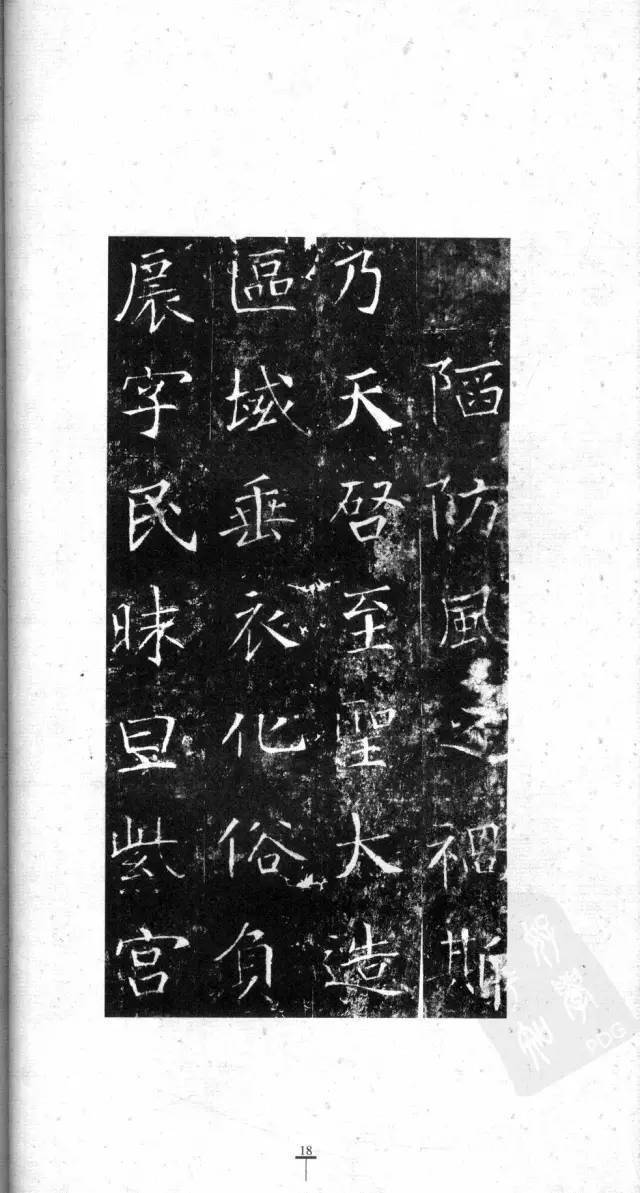 陋防風遠禍斯
乃天啓至聖大造
區域垂衣化俗負
扆字民昧旦紫宮
18
PDG